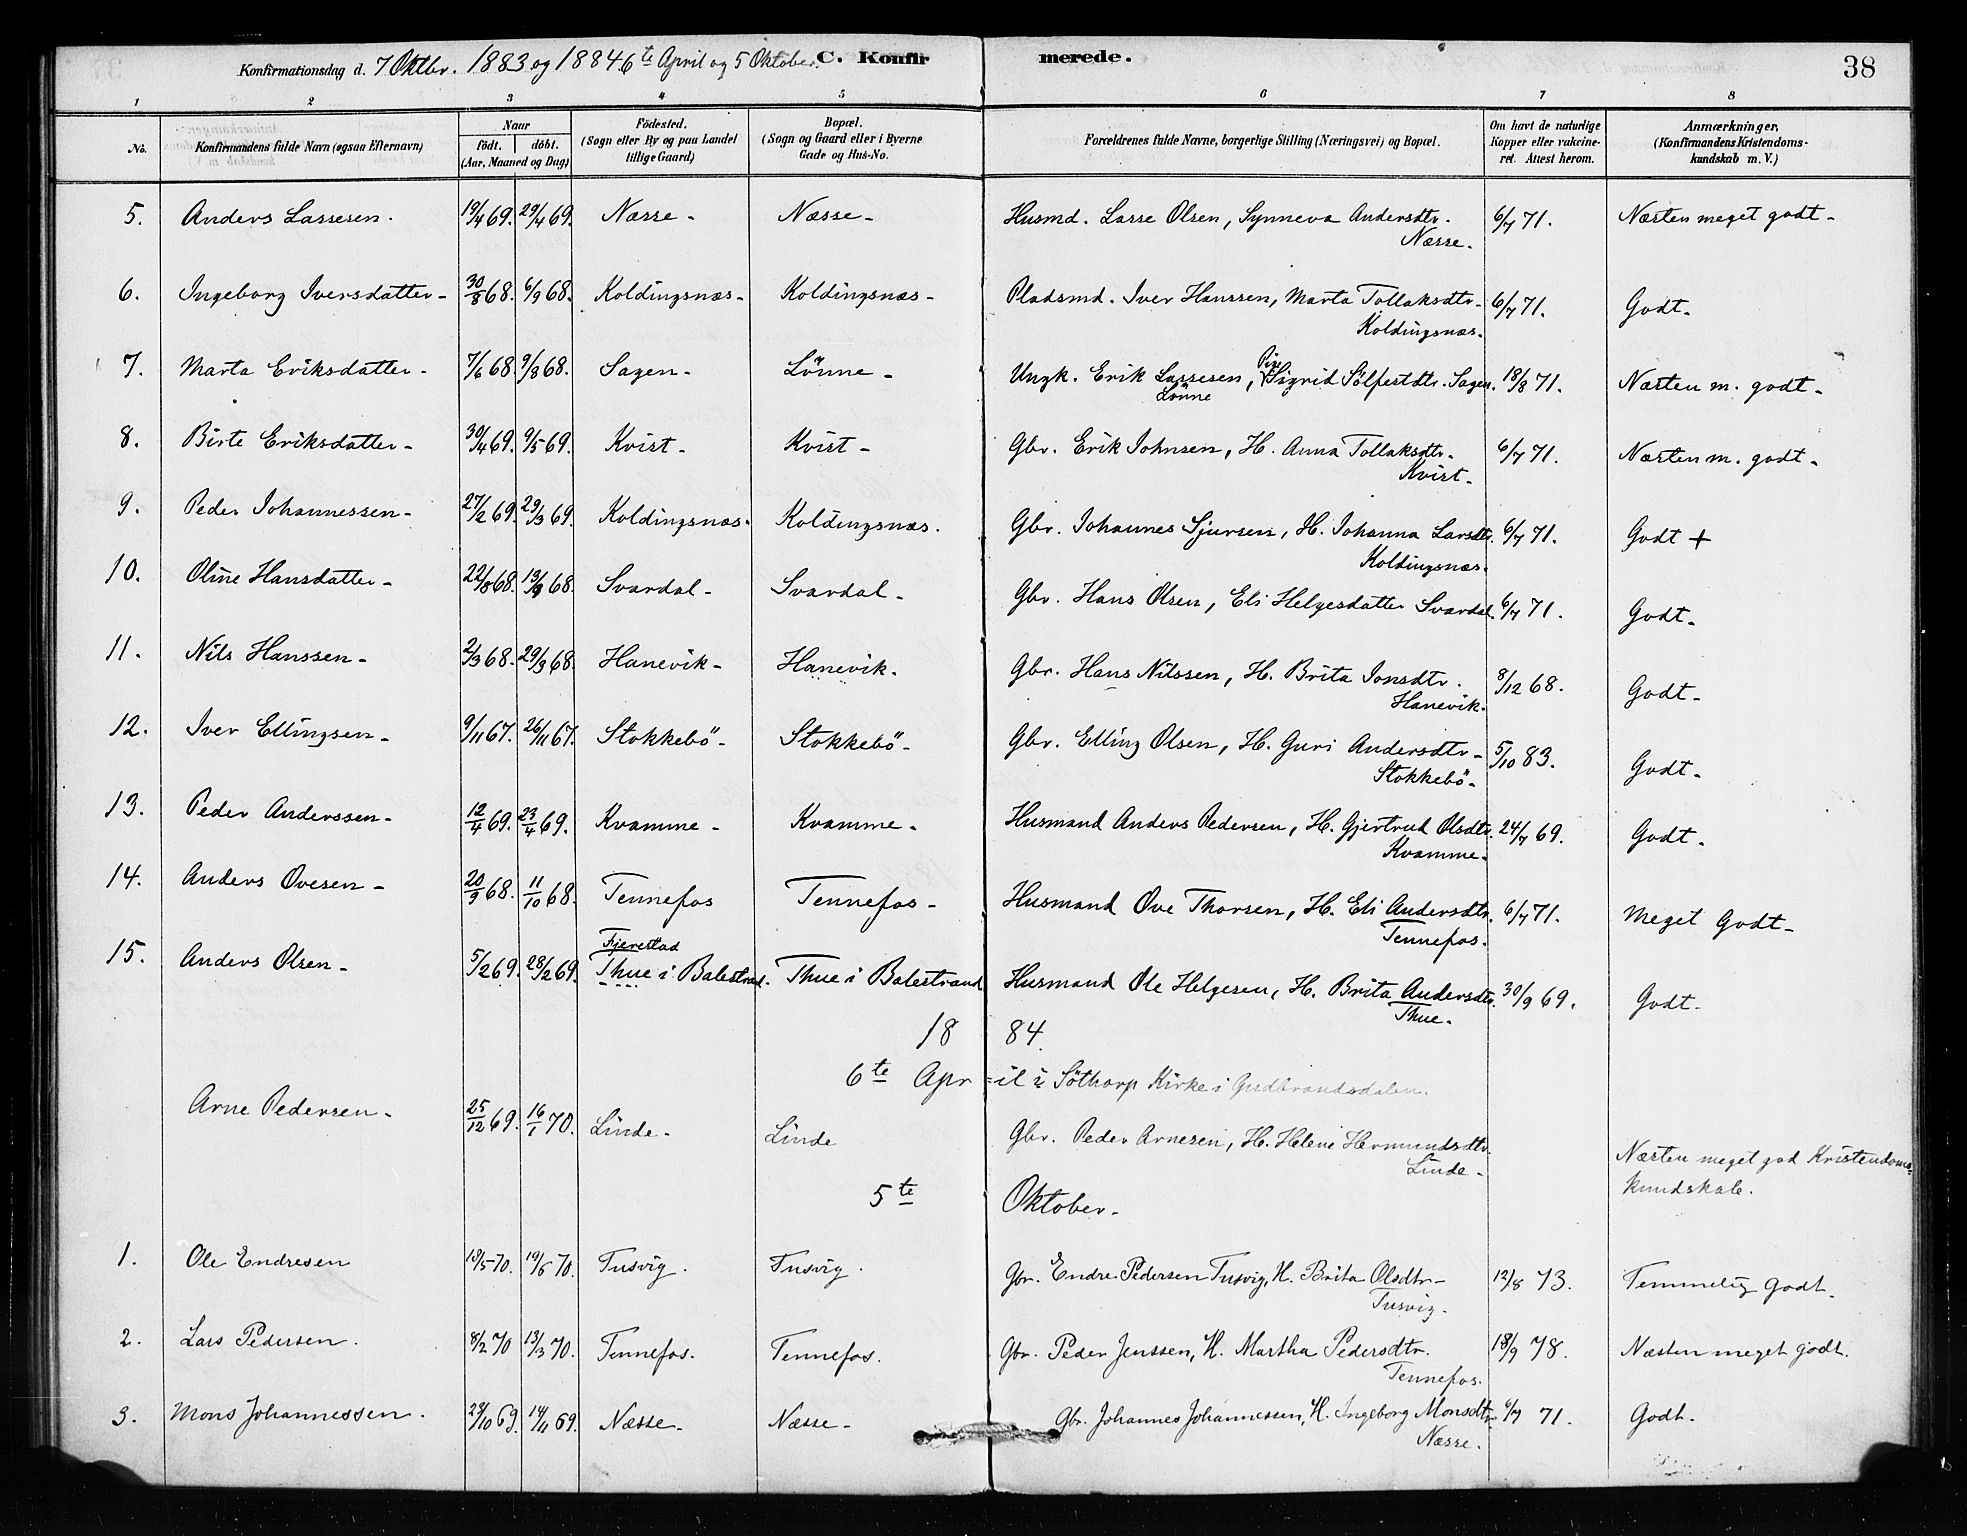 Konfirmationsdag d. 7 Oktbr. 1883 og 1884 6te April og 5 Oktober. C. Konfirmerede. 38
1 2 3 4 5 6 7 8
No. Konfirmandens fulde Navn (ogsaa Efternavn) Naar født. døbt. (Aar, Maaned og Dag) Fødested. (Sogn eller By og paa Landet tillige Gaard) Bopæl. (Sogn og Gaard eller i Byerne Gade og Hus-No. Forældrenes fulde Navne, borgerlige Stilling (Næringsvei) og Bopæl. Om havt de naturlige Kopper eller vakcineret. Attest herom. Anmærkninger, (Konfirmandens Kristendomskundskab m. V.)
5. Anders Lassesen. 19/4 69. 29/4 69. Næsse - Næsse - Husmd. Lasse Olsen, Synneva Andersdtr. Næsse. 6/7 71. Næsten meget godt -
6. Ingeborg Iversdatter - 30/8 68. 6/9 68. Koldingsnæs - Koldingsnæs - Pladsmd. Iver Hanssen, Marta Tollaksdtr - Koldingsnæs. 6/7 71. Godt -
7. Marta Eriksdatter - 7/6 68. 9/8 68. Sagen - Lönne - Ungk. Erik Lassesen, Lönne Pige Sigrid Sölfestdtr. Sagen. 18/8 71. Næsten m. godt -
8. Birte Eriksdatter - 30/4 69. 9/5 69. Kvist - Kvist - Gbr. Erik Johnsen, H. Anna Tollaksdtr - Kvist - 6/7 71. Næsten m. godt -
9. Peder Johannessen - 27/2 69. 29/3 69. Koldingsnæs. Koldingsnæs. Gbr. Johannes Sjursen, H. Johanna Larsdtr. Koldingsnæs. 6/7 71. Godt +
10. Oline Hansdatter - 22/8 68. 13/9 68. Svardal - Svardal - Gbr. Hans Olsen, Eli Helgesdatter Svardal. 6/7 71. Godt -
11. Nils Hanssen - 2/3 68. 29/3 68. Hanevik - Hanevik. Gbr. Hans Nilssen, H. Brita Jonsdtr. Hanevik. 8/12 68. Godt -
12. Iver Ellingsen - 9/11 67. 26/11 67. Stokkebö - Stokkebö - Gbr. Elling Olsen, H. Guri Andersdtr - Stokkebö - 5/10 83. Godt -
13. Peder Anderssen - 12/4 69. 23/4 69. Kvamme - Kvamme - Husmand Anders Pedersen, H. Gjertrud Olsdtr. Kvamme - 24/7 69. Godt -
14. Anders Ovesen - 20/9 68. 11/10 68. Tennefos Tennefos - Husmand Ove Thorsen, H. Eli Andersdtr. Tennefos. 6/7 71. Meget Godt -
15. Anders Olsen - 5/2 69. 28/2 69. Fjerestad Thue i Balestrand. Thue i Balestrand Husmand Ole Helgesen, H. Brita Andersdtr. Thue. 30/9 69. Godt -
1884.
6te April i Söthorp Kirke i Gudbrandsdalen.
Arne Pedersen - 25/12 69. 16/1 70. Linde - Linde Gbr. Peder Arnesen, H. Helene Hermundsdtr. Linde - Næsten meget god Kristendomskundskab.
5te Oktober -
1. Ole Endresen 18/5 70. 19/6 70. Tusvig. Tusvig. Gbr. Endre Pedersen Tusvig, H. Brita Olsdtr - Tusvig. 12/8 73. Temmelig Godt.
2. Lars Pedersen. 8/2 70 13/3 70. Tennefos. Tennefos. Gbr. Peder Jenssen, H. Martha Pedersdtr. Tennefos. 18/9 78. Næsten meget godt.
3. Mons Johannessen. 10 69. 14/11 69. Næsse - Næsse - Gbr. Johannes Johannessen, H. Ingeborg Monsdtr - Næsse. 6/7 71. Godt -